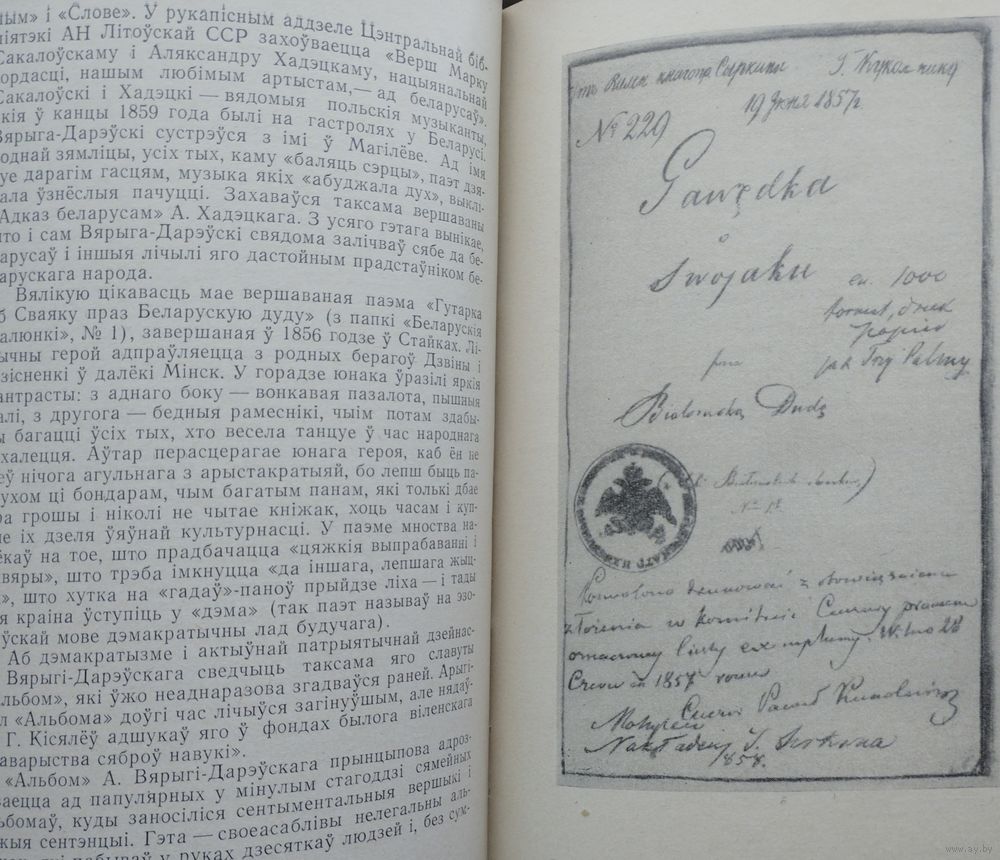 ным» і «Слове». Ў рукапісным аддзеле Цэнтральнай біб-
ліятэкі АН Літоўскай ССР захоўваецца «Верш Марку
Сакалоўскаму і Аляксандру Хадэцкаму, нацыянальнай
гордасці, нашым любімым артыстам,— ад беларусаў».
Сакалоўскі і Хадэцкі — вядомыя польскія музыканты,
якія ў канцы 1859 года былі на гастролях у Беларусі.
Вярыга-Дарэўскі сустрэўся з імі ў Магілёве. Ад імя
роднай зямліцы, усіх тых, каму «баляць сэрцы», паэт дзя-
куе дарагім гасцям, музыка якіх «абуджала дух», выклі-
кала ўзнёслыя пачуцці. Захаваўся таксама вершаваны
«Адказ беларусам» А. Хадэцкага. З усяго гэтага вынікае,
што і сам Вярыга-Дарэўскі свядома залічваў сябе да бе-
ларусаў і іншыя лічылі яго дастойным прадстаўніком бе-
ларускага народа.
Вялікую цікавасць мае вершаваная паэма «Гутарка
аб Сваяку праз Беларускую дуду» (з папкі «Беларускія
алюнкі», № 1), завершаная ў 1856 годзе ў Стайках. Лі-
рычны герой адпраўляецца з родных берагоў Дзвіны і
зісненкі ў далёкі Мінск. У горадзе юнака ўразілі яркія
кантрасты: з аднаго боку — вонкавая пазалота, пышныя
балі, з другога — бедныя рамеснікі, чыім потам здабы-
ты багацці ўсіх тых, хто весела танцуе ў час народнага
ліхалецця. Аўтар перасцерагае юнага героя, каб ён не
меў нічога агульнага з арыстакратыяй, бо лепш быць па-
стухом ці бондарам, чым багатым панам, які толькі дбае
пра грошы і ніколі не чытае кніжак, хоць часам і куп-
ляе іх дзеля ўяўнай культурнасці. У паэме мноства на-
мёкаў на тое, што прадбачацца «цяжкія выпрабаванні і
зверы», што трэба імкнуцца «да іншага, лепшага жыц-
ця», што хутка на «гадаў»-паноў прыйдзе ліха — і тады
уся краіна ўступіць у «дэма» (так паэт называў на эзо-
паўскай мове дэмакратычны лад будучага).
Аб дэмакратызме і актыўнай патрыятычнай дзейнас-
ці Вярыгі-Дарэўскага сведчыць таксама яго славуты
«Альбом», які ўжо неаднаразова згадваўся раней. Арыгі-
нал «Альбома» доўгі час лічыўся загінуўшым, але нядаў-
на Г. Кісялёў адшукаў яго ў фондах былога віленскага
«Таварыства сяброў навукі».
«Альбом» А. Вярыгі-Дарэўскага прынцыпова адроз-
ніваецца ад папулярных у мінулым стагоддзі сямейных
альбомаў, куды заносіліся сентыментальныя вершыкі і
чужыя сентэнцыі. Гэта — своеасаблівы нелегальны аль-
які пабываў у руках дзесяткаў людзей і, без сум-
19 Іюня 1857 г.
№ 229
Gawędka
o
Swojaku
ex. 1000
format, druk
papier
jak Trzy Palmy
prez
Białoruską Dudę
Pozwolono drukować z obowiązaniem
złożenia w Komitecie Cenzury prawem
oznaczonej liczby exemplarzy. Wilno 28
Czerwca 1857 roku
Cenzor Paweł Kukolnik
1858.
www.ay.by